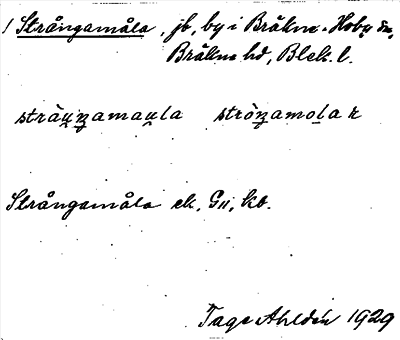 1 Strångamåla, jb, by i Bräkne-Hoby sn,
Bräkne hd, Blek. l.
stràu̯ŋamau̯la strònamolar
Strångamåla ek. G11, kb.
Tage Ahldén 1929